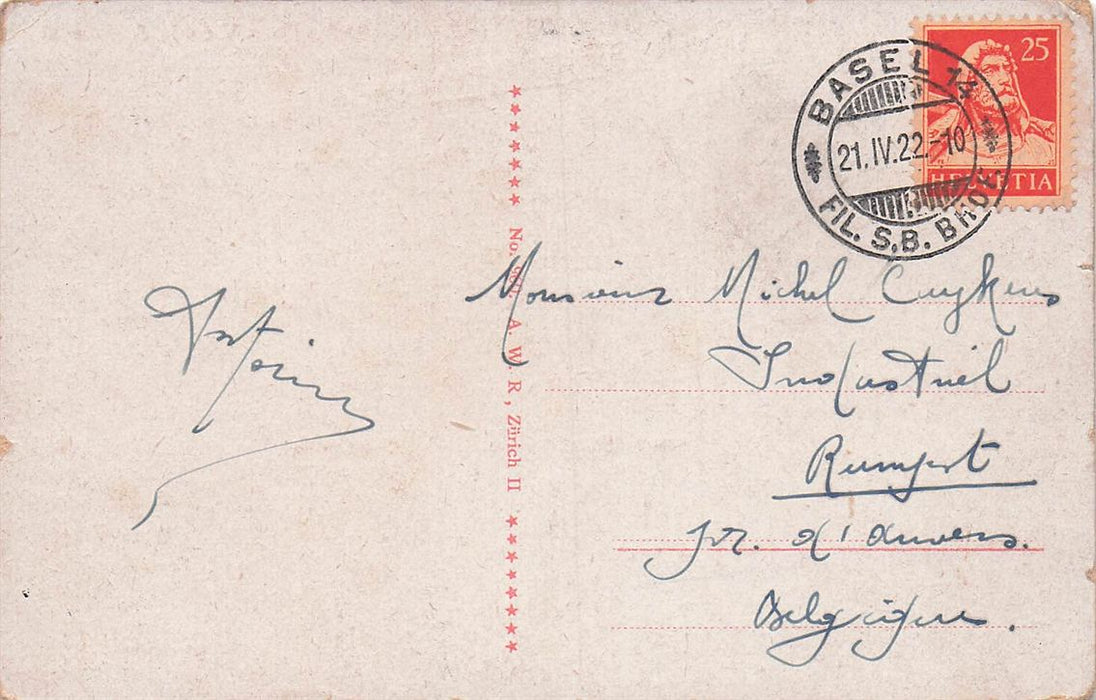 25
HELVETIA
BASEL 14
21.IV.22.-10
FIL. S.B. BHOF.
No. A. W. R, Zürich II
Monsieur Michel Cuykens
Industriel
Rumpst
pr. d'Anvers.
Belgique.